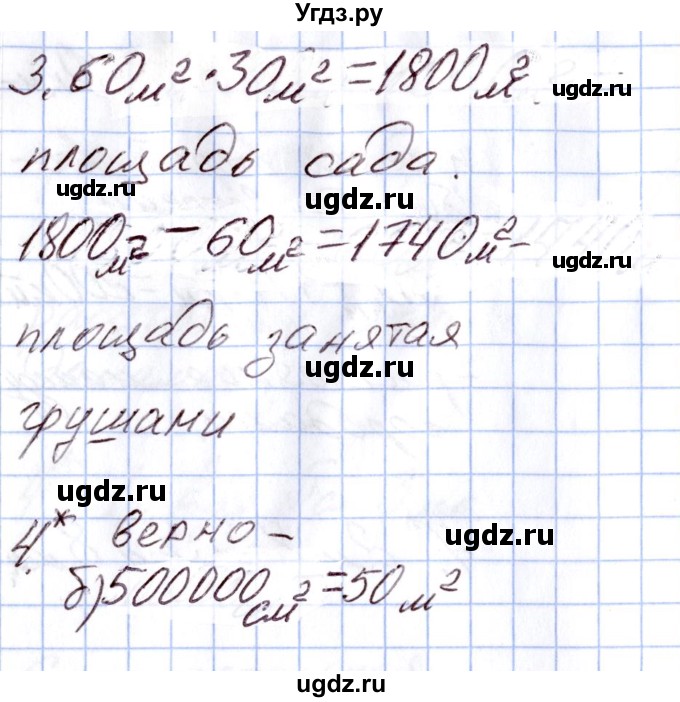 Угдз.ру
3. 60м² · 30м² = 1800м²
площадь сада.
ugdz.ru ugdz.ru
1800м² - 60м² = 1740м² -
ugdz.ru
площадь занятая
ugdz.ru
грушами
ugdz.ru
4* верно -
ugdz.ru
б) 500000см² = 50м²
ugdz.ru
ugdz.ru